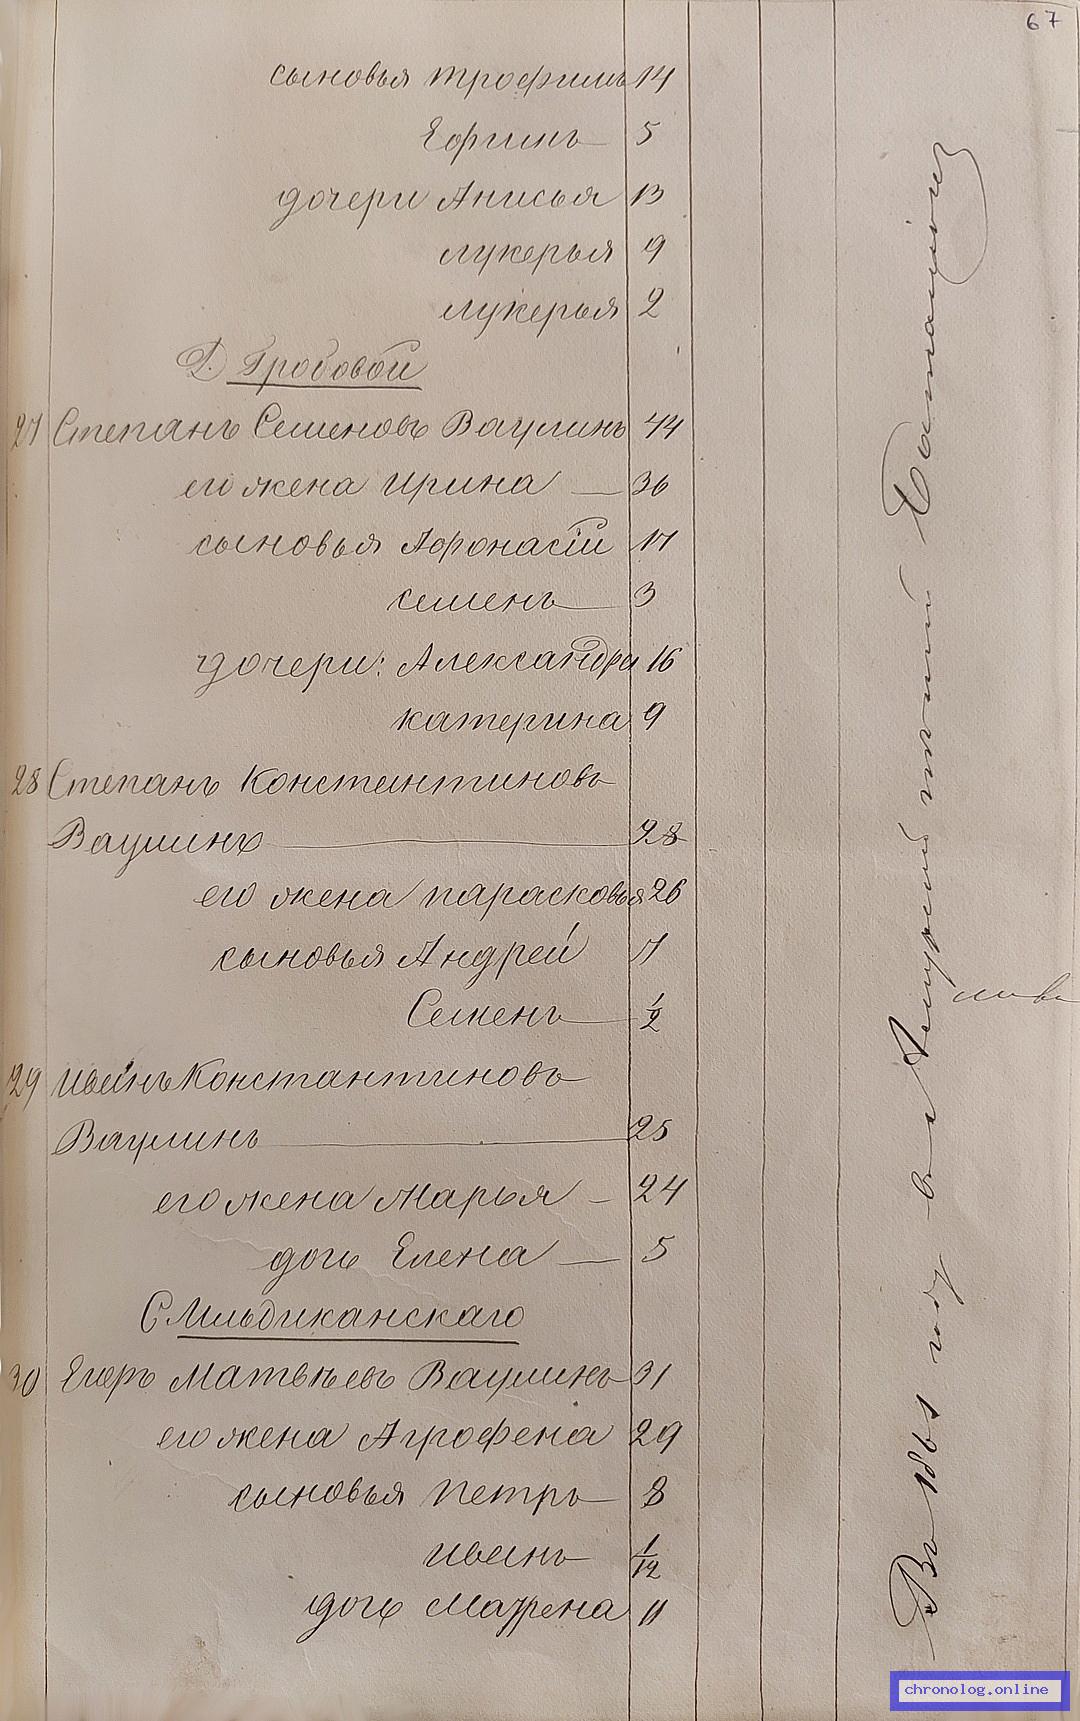 67
сыновья Трофимъ 14
Ефимъ 5
дочери Анисья 13
лукерья 9
лукерья 2
Д. Гробовой
27 Степанъ Семеновъ Ваулинъ 44
его жена ирина 36
сыновья Афонасій 17
семенъ 3
дочери: Александра 16
катерина 9
28 Степанъ Константиновъ
Ваулинъ 28
его жена парасковья 26
сыновья Андрей 7
Семенъ 1/2
29 иванъ Константиновъ
Ваулинъ 25
его жена Марья 24
дочь Елена 5
С Мильдиканскаго
30 Егоръ Матвѣевъ Ваулинъ 31
его жена Агрофена 29
сыновья петръ 8
иванъ 1/12
дочь Матрена 11
Въ 1865 году въ Амурскій пѣшій Баталіонъ
chronolog.online